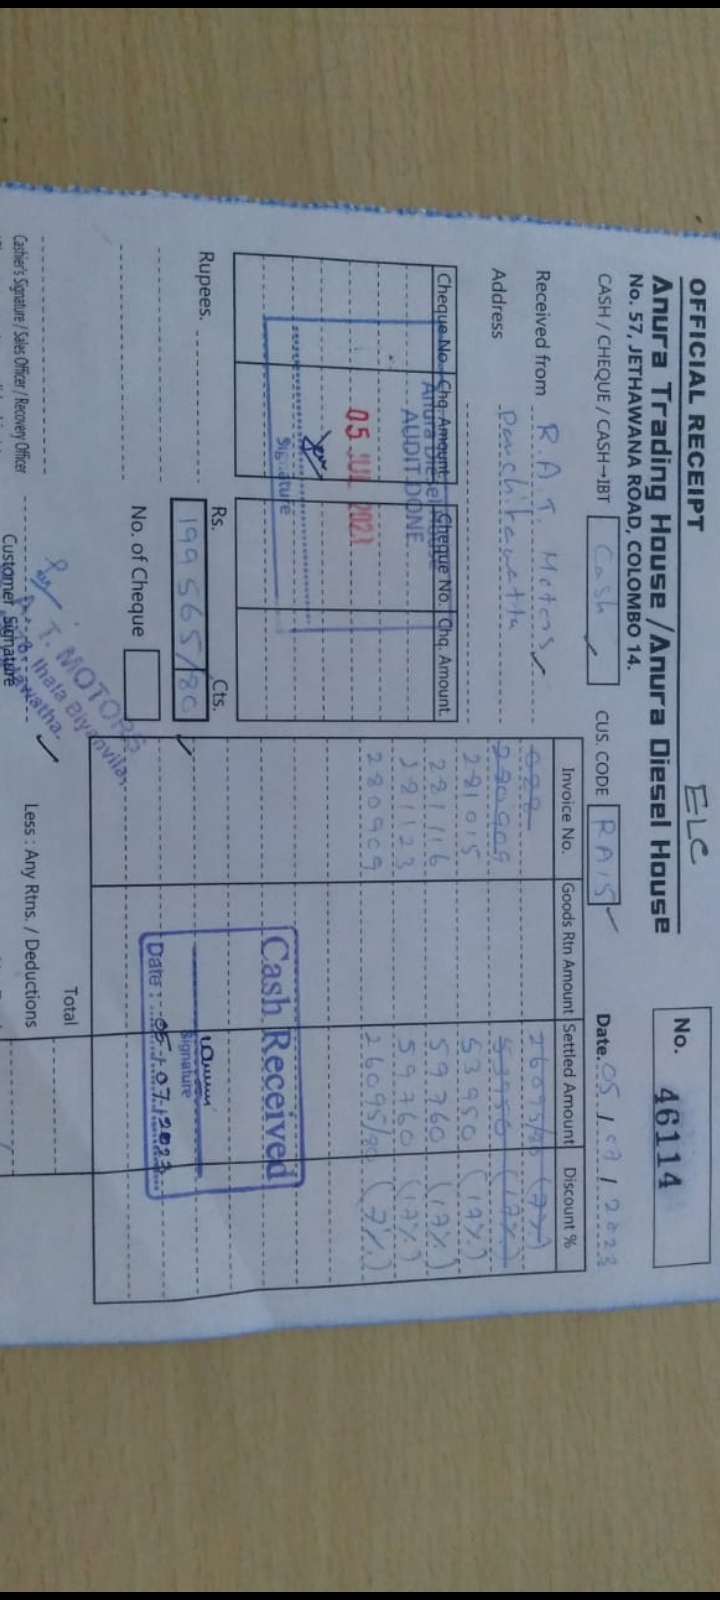 OFFICIAL RECEIPT
ELC
No. 46114
Anura Trading House / Anura Diesel House
No. 57, JETHAWANA ROAD, COLOMBO 14.
CASH / CHEQUE / CASH→IBT Cash CUS. CODE RA15 Date. 05 / 07 / 2023
Received from R.A.T. Motors
Address Panchikawatta
Cheque No. Chq. Amount. Cheque No. Chq. Amount.
Anura Diesel House
AUDIT DONE
05 JUL 2021
Signature
Rupees.
Rs. Cts.
199 565/80
No. of Cheque
Invoice No. Goods Rtn Amount Settled Amount Discount %
26095/80 (7%)
280909 53950 (17%)
281015 53950 (17%)
281116 59760 (17%)
281123 59760 (17%)
280909 26095/80 (7%)
Cash Received
Signature
Date : 05.07.2023
Total
Less : Any Rtns. / Deductions
T. MOTORS
Ihala Biyanvila,
Cashier's Signature / Sales Officer / Recovery Officer
Customer Signature